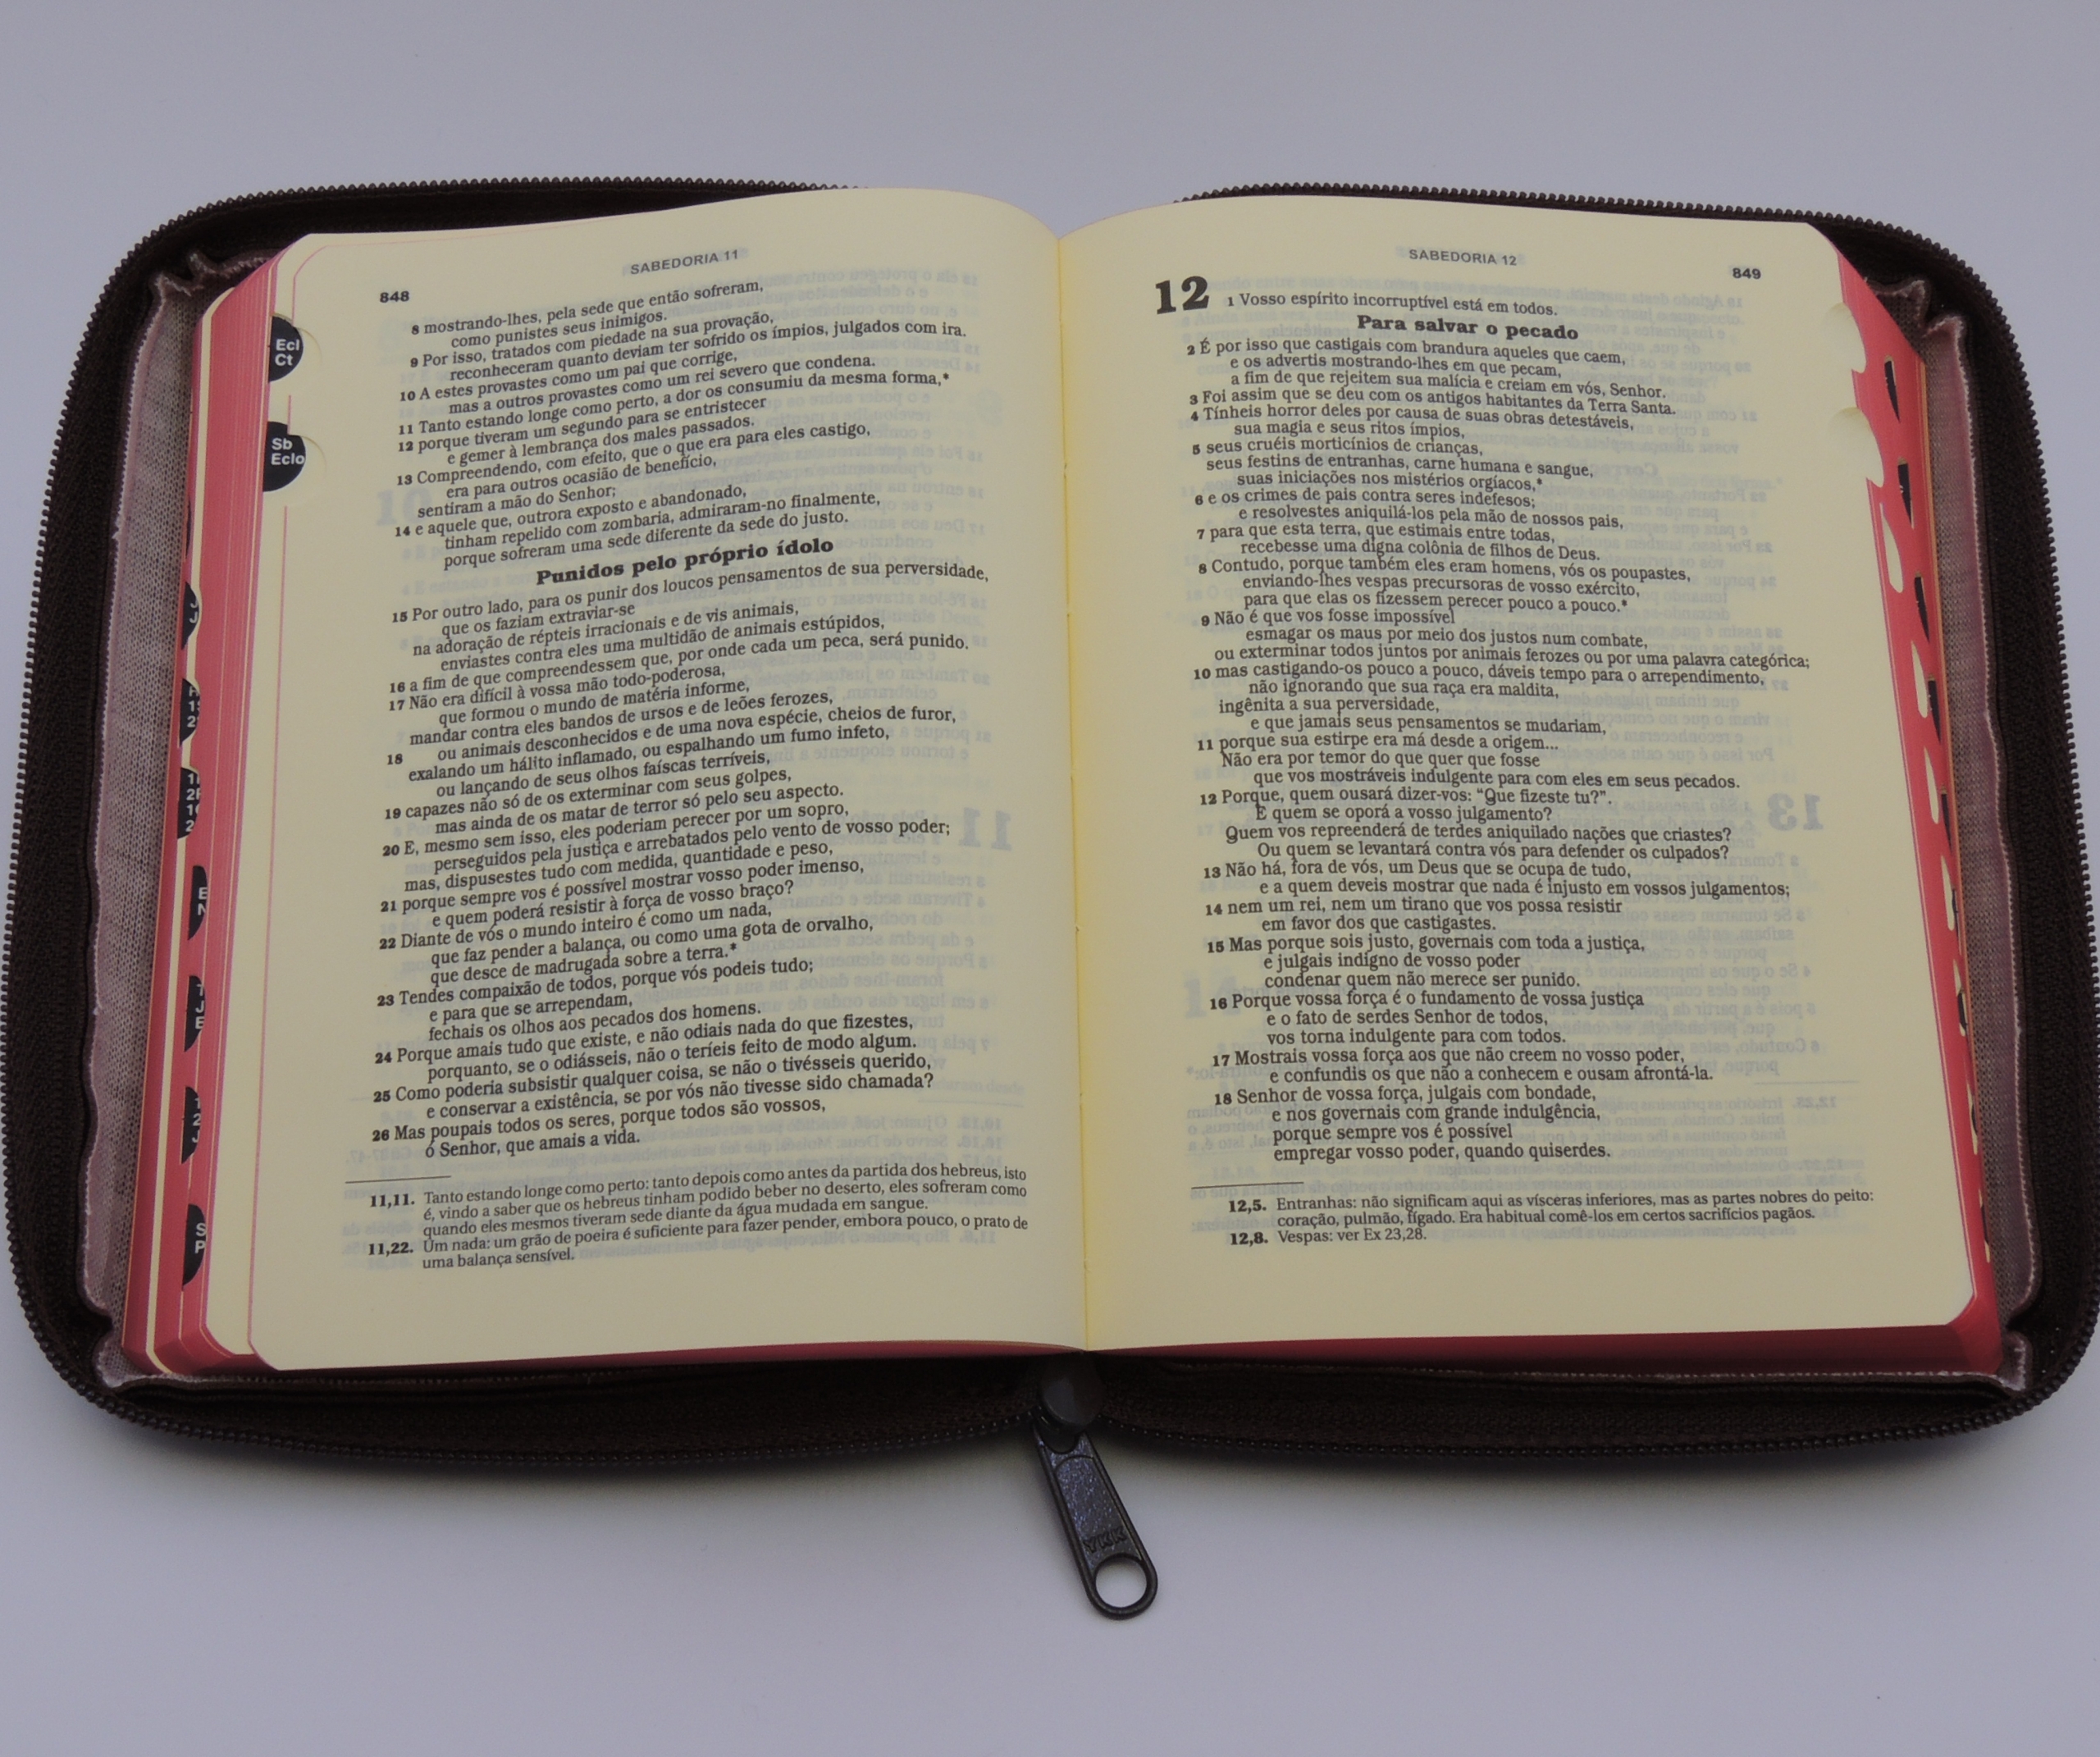 SABEDORIA 11
848
8 mostrando-lhes, pela sede que então sofreram,
como punistes seus inimigos.
9 Por isso, tratados com piedade na sua provação,
reconheceram quanto deviam ter sofrido os ímpios, julgados com ira.
10 A estes provastes como um pai que corrige,
mas a outros provastes como um rei severo que condena.
11 Tanto estando longe como perto, a dor os consumiu da mesma forma,*
12 porque tiveram um segundo para se entristecer
e gemer à lembrança dos males passados.
13 Compreendendo, com efeito, que o que era para eles castigo,
era para outros ocasião de benefício,
sentiram a mão do Senhor;
14 e aquele que, outrora exposto e abandonado,
tinham repelido com zombaria, admiraram-no finalmente,
porque sofreram uma sede diferente da sede do justo.
Punidos pelo próprio ídolo
15 Por outro lado, para os punir dos loucos pensamentos de sua perversidade,
que os faziam extraviar-se
na adoração de répteis irracionais e de vis animais,
enviastes contra eles uma multidão de animais estúpidos,
16 a fim de que compreendessem que, por onde cada um peca, será punido.
17 Não era difícil à vossa mão todo-poderosa,
que formou o mundo de matéria informe,
mandar contra eles bandos de ursos e de leões ferozes,
18 ou animais desconhecidos e de uma nova espécie, cheios de furor,
exalando um hálito inflamado, ou espalhando um fumo infeto,
ou lançando de seus olhos faíscas terríveis,
19 capazes não só de os exterminar com seus golpes,
mas ainda de os matar de terror só pelo seu aspecto.
20 E, mesmo sem isso, eles poderiam perecer por um sopro,
perseguidos pela justiça e arrebatados pelo vento de vosso poder;
mas, dispusestes tudo com medida, quantidade e peso,
21 porque sempre vos é possível mostrar vosso poder imenso,
e quem poderá resistir à força de vosso braço?
22 Diante de vós o mundo inteiro é como um nada,
que faz pender a balança, ou como uma gota de orvalho,
que desce de madrugada sobre a terra.*
23 Tendes compaixão de todos, porque vós podeis tudo;
e para que se arrependam,
fechais os olhos aos pecados dos homens.
24 Porque amais tudo que existe, e não odiais nada do que fizestes,
porquanto, se o odiásseis, não o teríeis feito de modo algum.
25 Como poderia subsistir qualquer coisa, se não o tivésseis querido,
e conservar a existência, se por vós não tivesse sido chamada?
26 Mas poupais todos os seres, porque todos são vossos,
ó Senhor, que amais a vida.
11,11. Tanto estando longe como perto: tanto depois como antes da partida dos hebreus, isto
é, vindo a saber que os hebreus tinham podido beber no deserto, eles sofreram como
quando eles mesmos tiveram sede diante da água mudada em sangue.
11,22. Um nada: um grão de poeira é suficiente para fazer pender, embora pouco, o prato de
uma balança sensível.
Ecl
Ct
Sb
Eclo
SABEDORIA 12
849
12
1 Vosso espírito incorruptível está em todos.
Para salvar o pecado
2 É por isso que castigais com brandura aqueles que caem,
e os advertis mostrando-lhes em que pecam,
a fim de que rejeitem sua malícia e creiam em vós, Senhor.
3 Foi assim que se deu com os antigos habitantes da Terra Santa.
4 Tínheis horror deles por causa de suas obras detestáveis,
sua magia e seus ritos ímpios,
5 seus cruéis morticínios de crianças,
seus festins de entranhas, carne humana e sangue,
suas iniciações nos mistérios orgíacos,*
6 e os crimes de pais contra seres indefesos;
e resolvestes aniquilá-los pela mão de nossos pais,
7 para que esta terra, que estimais entre todas,
recebesse uma digna colônia de filhos de Deus.
8 Contudo, porque também eles eram homens, vós os poupastes,
enviando-lhes vespas precursoras de vosso exército,
para que elas os fizessem perecer pouco a pouco.*
9 Não é que vos fosse impossível
esmagar os maus por meio dos justos num combate,
ou exterminar todos juntos por animais ferozes ou por uma palavra categórica;
10 mas castigando-os pouco a pouco, dáveis tempo para o arrependimento,
não ignorando que sua raça era maldita,
ingênita a sua perversidade,
e que jamais seus pensamentos se mudariam,
11 porque sua estirpe era má desde a origem...
Não era por temor do que quer que fosse
que vos mostráveis indulgente para com eles em seus pecados.
12 Porque, quem ousará dizer-vos: “Que fizeste tu?”.
E quem se oporá a vosso julgamento?
Quem vos repreenderá de terdes aniquilado nações que criastes?
Ou quem se levantará contra vós para defender os culpados?
13 Não há, fora de vós, um Deus que se ocupa de tudo,
e a quem deveis mostrar que nada é injusto em vossos julgamentos;
14 nem um rei, nem um tirano que vos possa resistir
em favor dos que castigastes.
15 Mas porque sois justo, governais com toda a justiça,
e julgais indigno de vosso poder
condenar quem não merece ser punido.
16 Porque vossa força é o fundamento de vossa justiça
e o fato de serdes Senhor de todos,
vos torna indulgente para com todos.
17 Mostrais vossa força aos que não creem no vosso poder,
e confundis os que não a conhecem e ousam afrontá-la.
18 Senhor de vossa força, julgais com bondade,
e nos governais com grande indulgência,
porque sempre vos é possível
empregar vosso poder, quando quiserdes.
12,5. Entranhas: não significam aqui as vísceras inferiores, mas as partes nobres do peito:
coração, pulmão, fígado. Era habitual comê-los em certos sacrifícios pagãos.
12,8. Vespas: ver Ex 23,28.
YKK